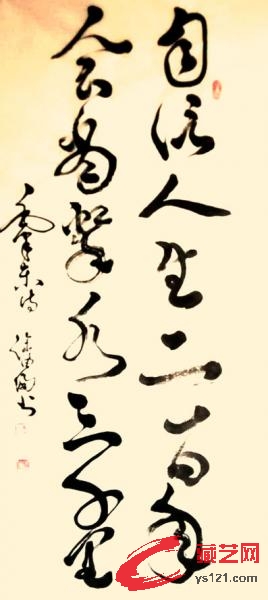 自信人生二百年
会当击水三千里
东诗
书
藏艺网
ys121.com